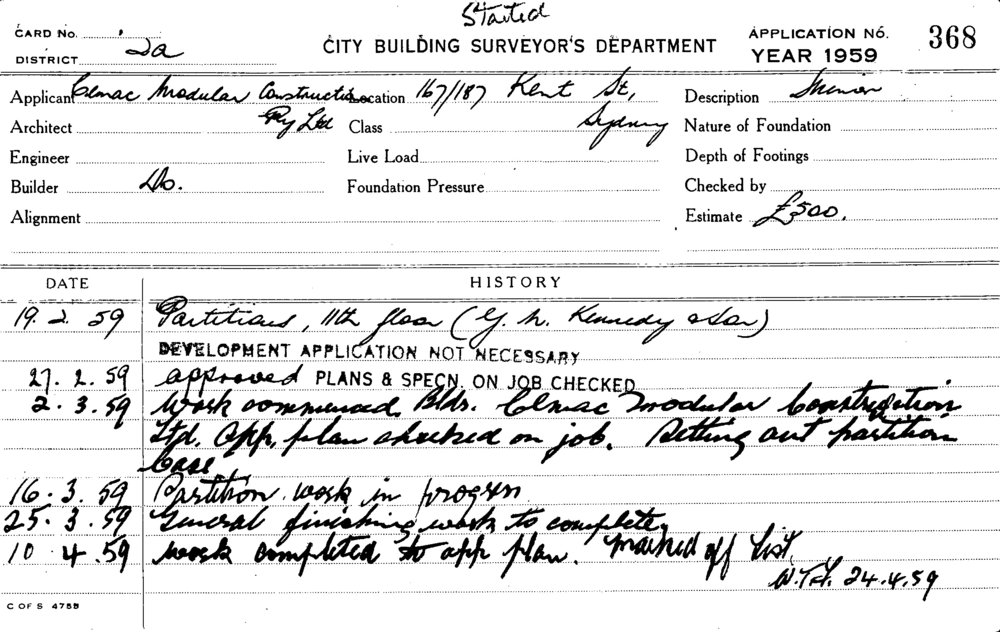 Started
CARD No.
DISTRICT 2a
CITY BUILDING SURVEYOR'S DEPARTMENT
APPLICATION No. 368
YEAR 1959
Applicant Clmac Modular Construction Pty Ltd
Location 167/187 Kent St, Sydney
Description
Architect
Class
Nature of Foundation
Engineer
Live Load
Depth of Footings
Builder Do.
Foundation Pressure
Checked by
Alignment
Estimate £500.
DATE HISTORY
19. 2. 59 Partitions, 11th floor (G. N. Kennedy & Son)
DEVELOPMENT APPLICATION NOT NECESSARY
27. 2. 59 approved PLANS & SPECN. ON JOB CHECKED
2. 3. 59 Work commenced. Bldr. Clmac Modular Construction
Ltd. App. plan checked on job. Setting out partition
base
16. 3. 59 Partition work in progress
25. 3. 59 General finishing work to complete,
10 4. 59 work completed to app plan. Marked off List.
24.4.59
C OF S 4755